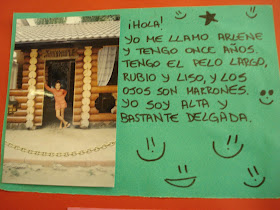 ¡HOLA!
YO ME LLAMO ARLENE
Y TENGO ONCE AÑOS.
TENGO EL PELO LARGO,
RUBIO Y LISO, Y LOS
OJOS SON MARRONES.
YO SOY ALTA Y
BASTANTE DELGADA.